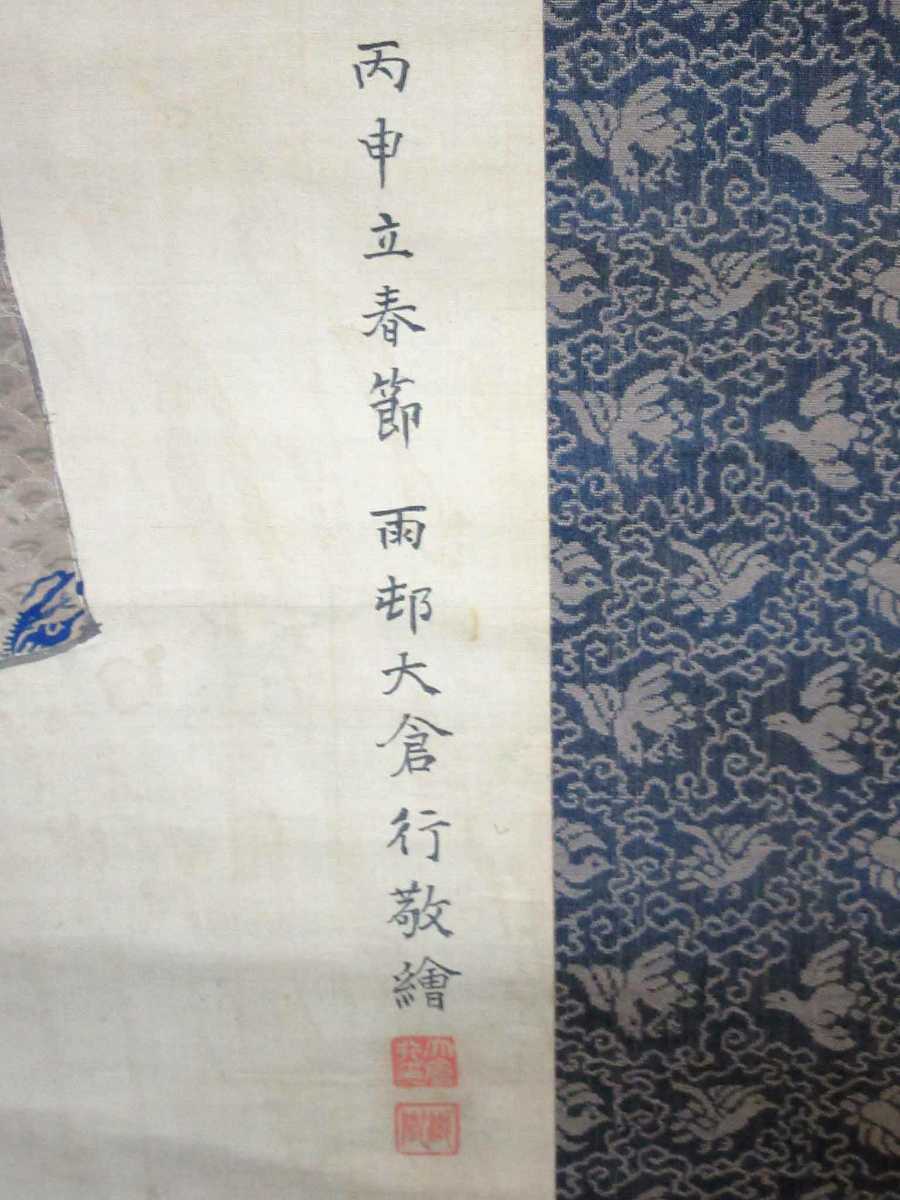 丙申立春節 雨邨大倉行敬繪